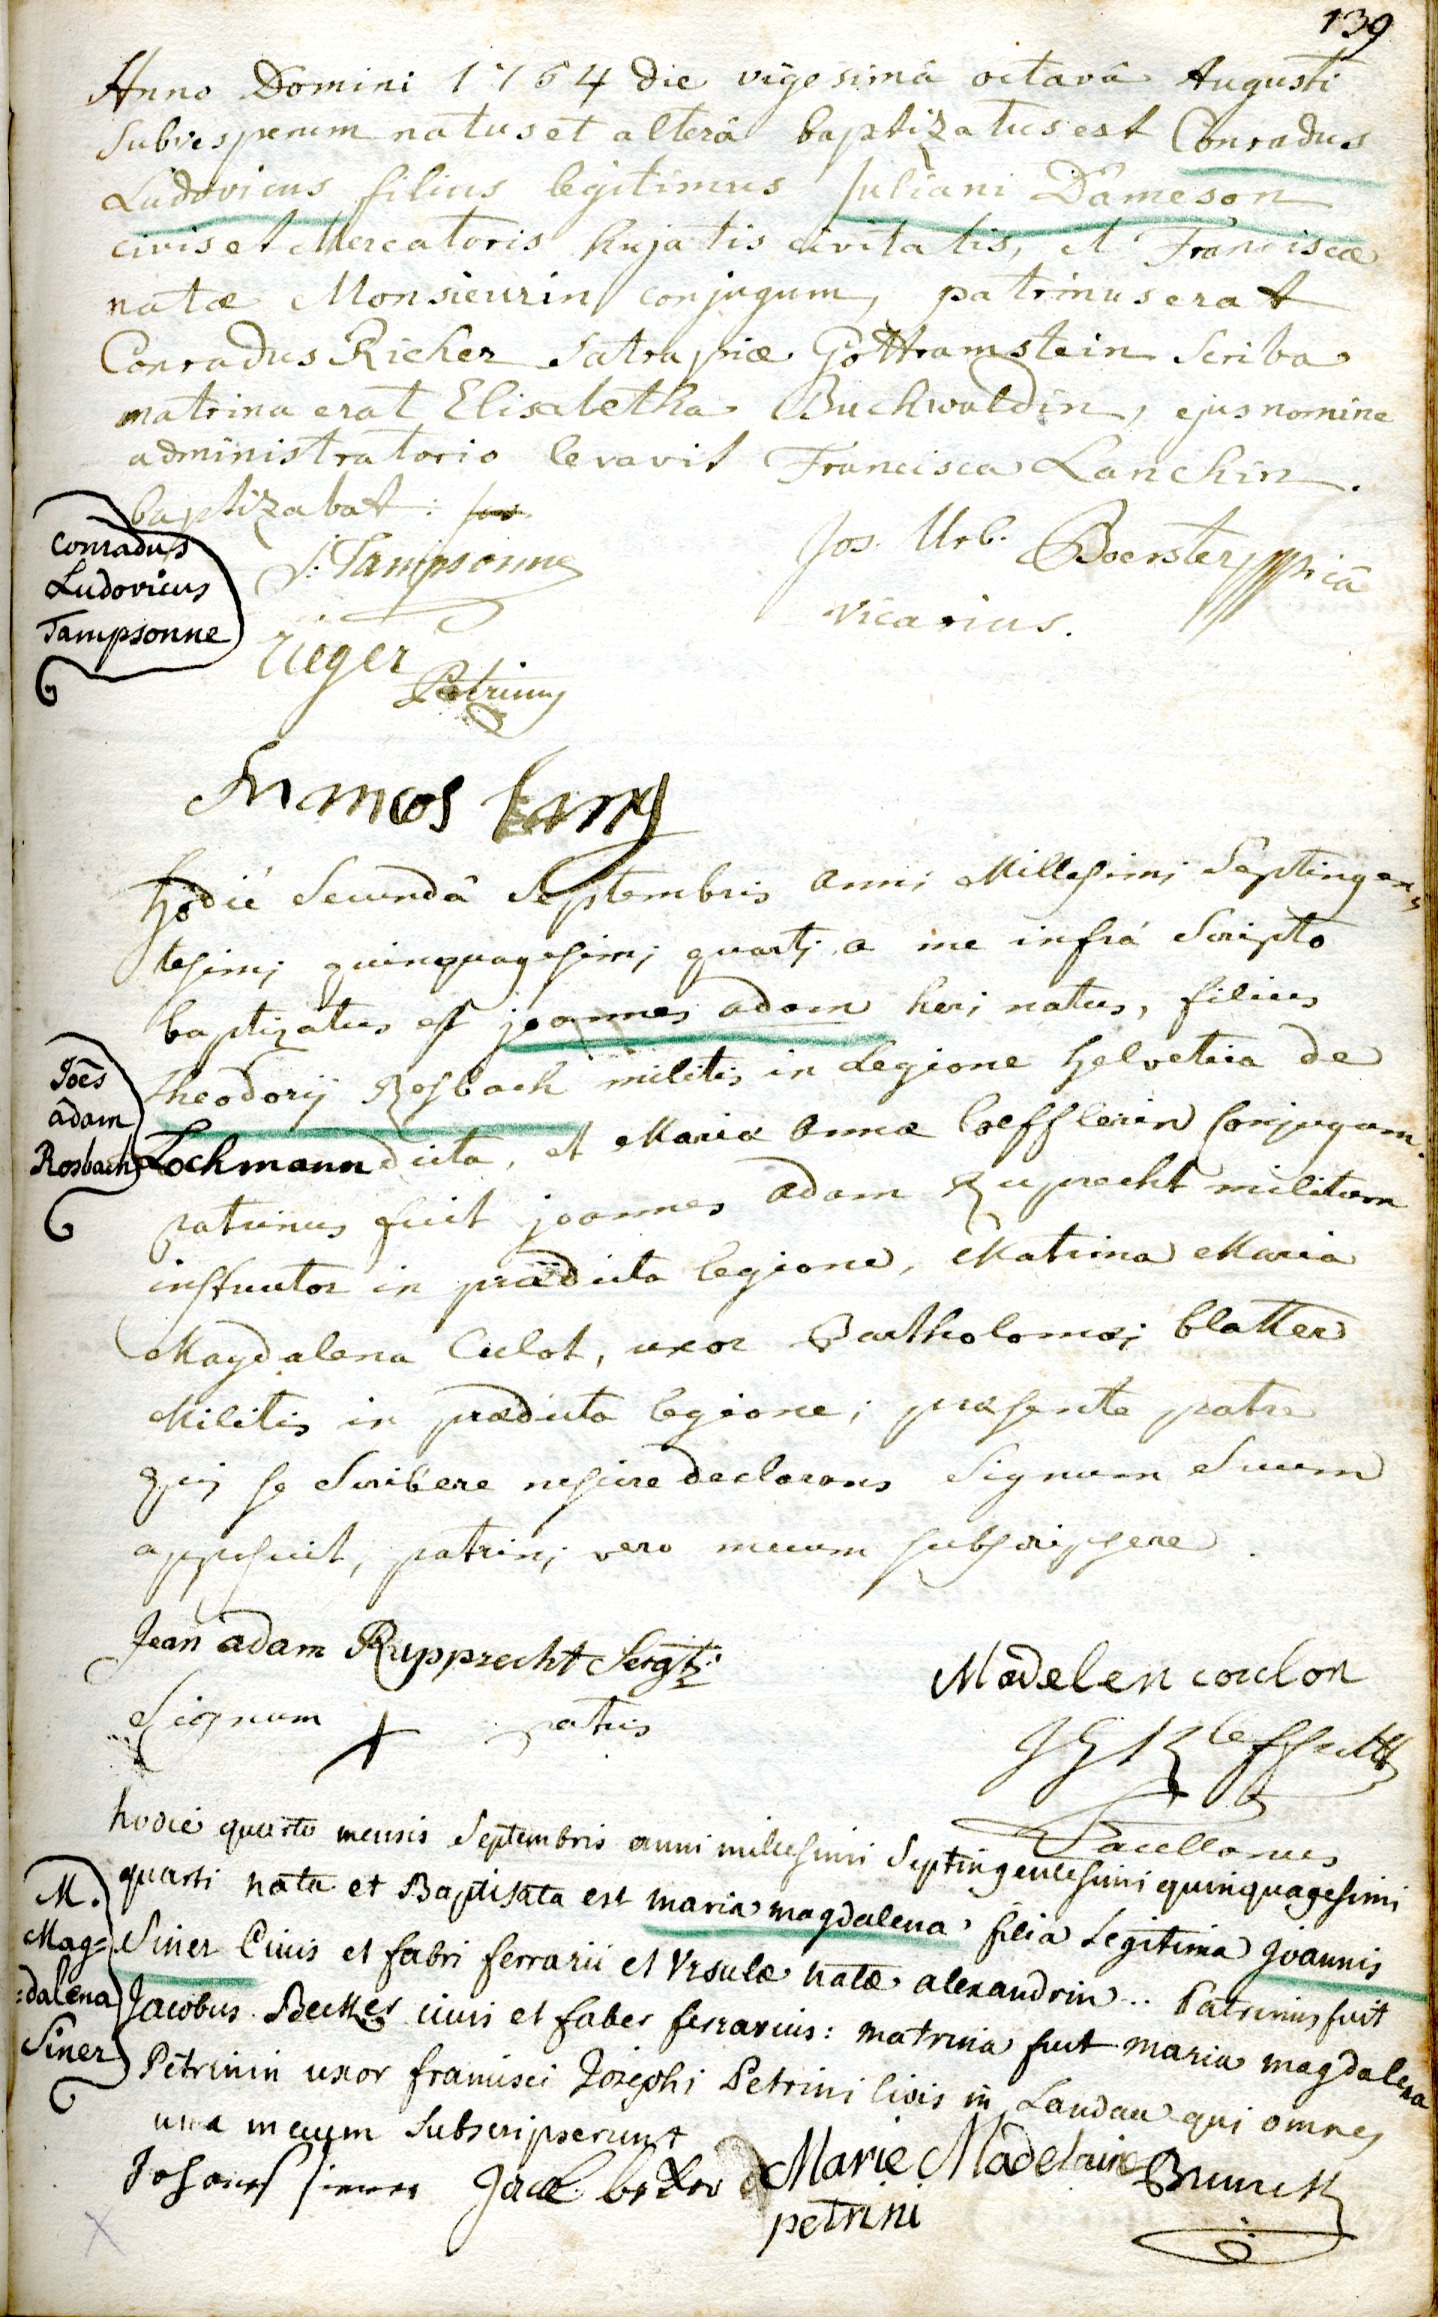 139
Anno Domini 1764 die vigesimâ octavâ Augusti
Subvesperum natus et alterâ baptizatus est Conradus
Ludovicus filius legitimus Juliani Dameson
civis et Mercatoris hujatis civitatis, et Franciscæ
natæ Monsieurin conjugum, patrinus erat
Conradus Richer Satrapiæ Gottramstein Scriba
matrina erat Elisabetha Buchwaldin, ejus nomine
administratorio levavit Francisca Lanchin.
baptizabat:
Jos. Urb. Boerster
vicarius.
J: Tampsonne
Rieger
Patrinus
Conradus
Ludovicus
Tampsonne
Hodié Secundâ Septembris anni Millesimi Septingen
tesimi quinquagesimi quarti a me infrá Scripto
baptizatus est joannes adam heri natus, filius
theodorij Rosbach militis in Legione helvetica de
Lochmann dicta, et Maria Anna Coefflerin Conjugum.
patrinus fuit joannes adam Ruprecht militum
instructor in prædicta legione, Matrina Maria
Magdalena Culot, uxor Bartholomæi blatter
Militis in prædicta legione; præsente patre
qui se Scribere nescire declarans Signum Suum
apposuit, patrini vero mecum subscripsere.
Joēs
adam
Rosbach
Jean adam Rupprecht Sergt:
Madelen coulon
Signum + patris
Sacellanus
hodie quarto mensis Septembris anni millesimi Septingentesimi quinquagesimi
quarti nata et Baptisata est maria magdalena filia Legitima Joannis
Siner Civis et fabri ferrarii et Ursulæ natæ alexandrin.. Patrinus fuit
Jacobus Becker civis et faber ferrarius: matrina fuit maria magdalena
Petrinin uxor francisci Josephi Petrini Civis in Landau qui omnes
una mecum Subscripserunt
M.
Mag=
=dalena
Siner
Johannes siener Jacob becker Marie Madelaine
petrini
Brunck